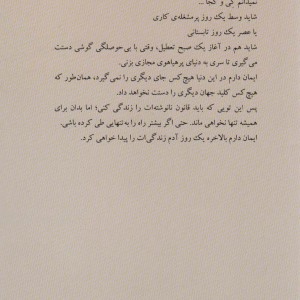 نمیدانم کِی و کجا...
شاید وسط یک روز پرمشغله‌ی کاری
یا عصر یک روز تابستانی
شاید هم در آغاز یک صبح تعطیل، وقتی با بی‌حوصلگی گوشی دستت
می‌گیری تا سری به دنیای پرهیاهوی مجازی بزنی.
ایمان دارم در این دنیا هیچ‌کس جای دیگری را نمی‌گیرد، همان‌طور که
هیچ‌کس کلید جهان دیگری را دستت نخواهد داد.
پس این تویی که باید قانون نانوشته‌ات را زندگی کنی؛ اما بدان برای
همیشه تنها نخواهی ماند. حتی اگر بیشتر راه را به‌تنهایی طی کرده باشی.
ایمان دارم بالاخره یک روز آدم زندگی‌ات را پیدا خواهی کرد.